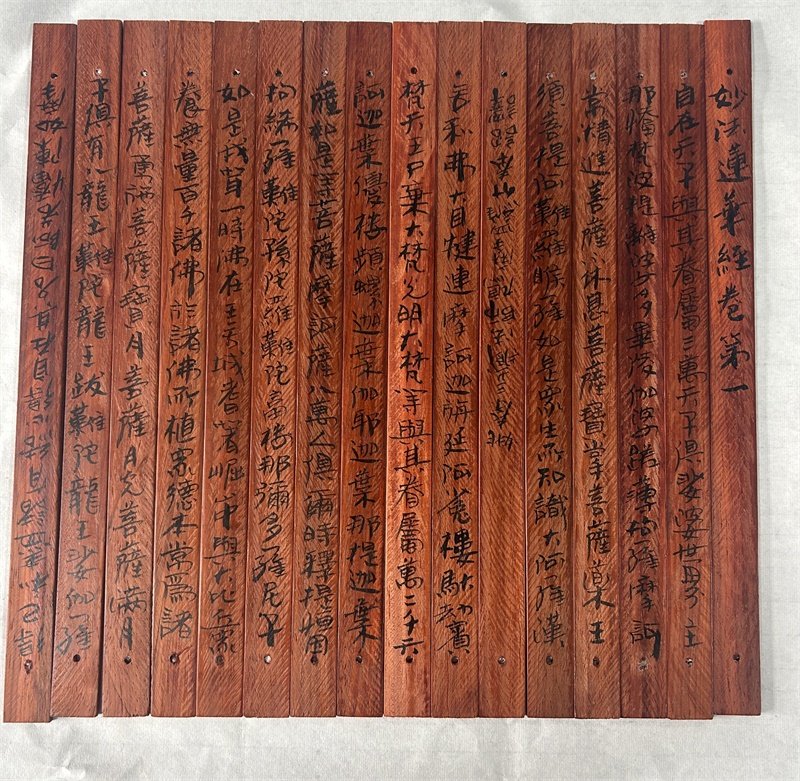 妙法蓮華經卷第一
自在天子與其眷屬三萬天子俱娑婆世界主
那憍梵波提離婆多畢陵伽婆蹉薄拘羅摩訶
常精進菩薩休息菩薩寶掌菩薩藥王
須菩提阿難羅睺羅如是眾生所知識大阿羅漢
舍利弗大目犍連摩訶迦旃延阿㝹樓馱劫賓
梵天王尸棄大梵光明大梵等與其眷屬萬二千天
訶迦葉優樓頻螺迦葉伽耶迦葉那提迦葉
薩如是等菩薩摩訶薩八萬人俱爾時釋提桓因
拘絺羅難陀孫陀羅難陀富樓那彌多羅尼子
如是我聞一時佛在王舍城耆闍崛中與大比丘眾
養無量百千諸佛於諸佛所植眾德本常為諸
菩薩勇施菩薩寶月菩薩月光菩薩滿月
子俱有八龍王難陀龍王跋難陀龍王娑伽羅
自在其名曰阿若憍陳如摩